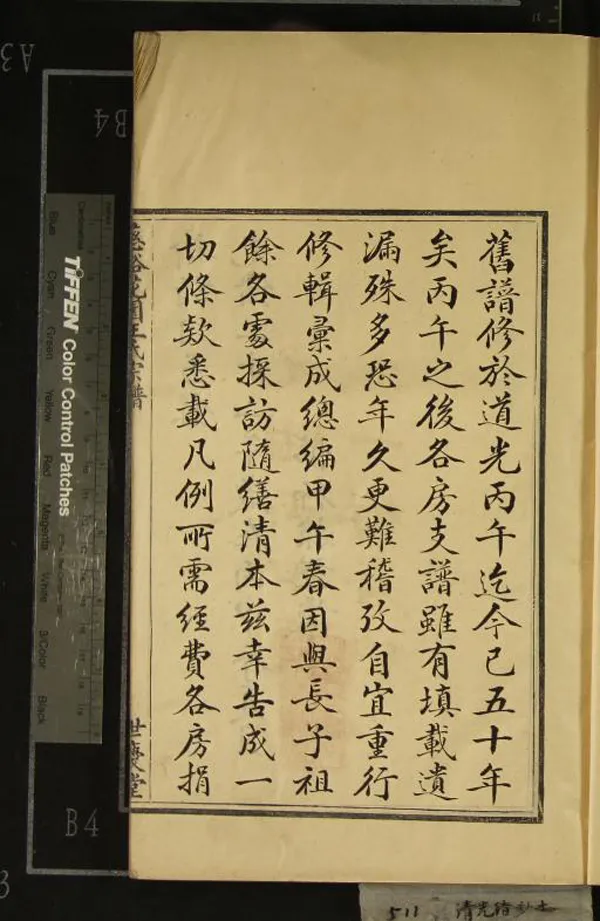 舊譜修於道光丙午迄今已五十年
矣丙午之後各房支譜雖有填載遺
漏殊多恐年久更難稽攷自宜重行
修輯彙成總編甲午春因與長子祖
餘各處採訪隨繕清本茲幸告成一
切條欵悉載凡例所需經費各房捐
王氏宗譜
世慶堂
TIFFEN Color Control Patches
Blue
Cyan
Green
Yellow
Red
Magenta
White
3/Color
Black
A3
B4
B4
511 清光緒